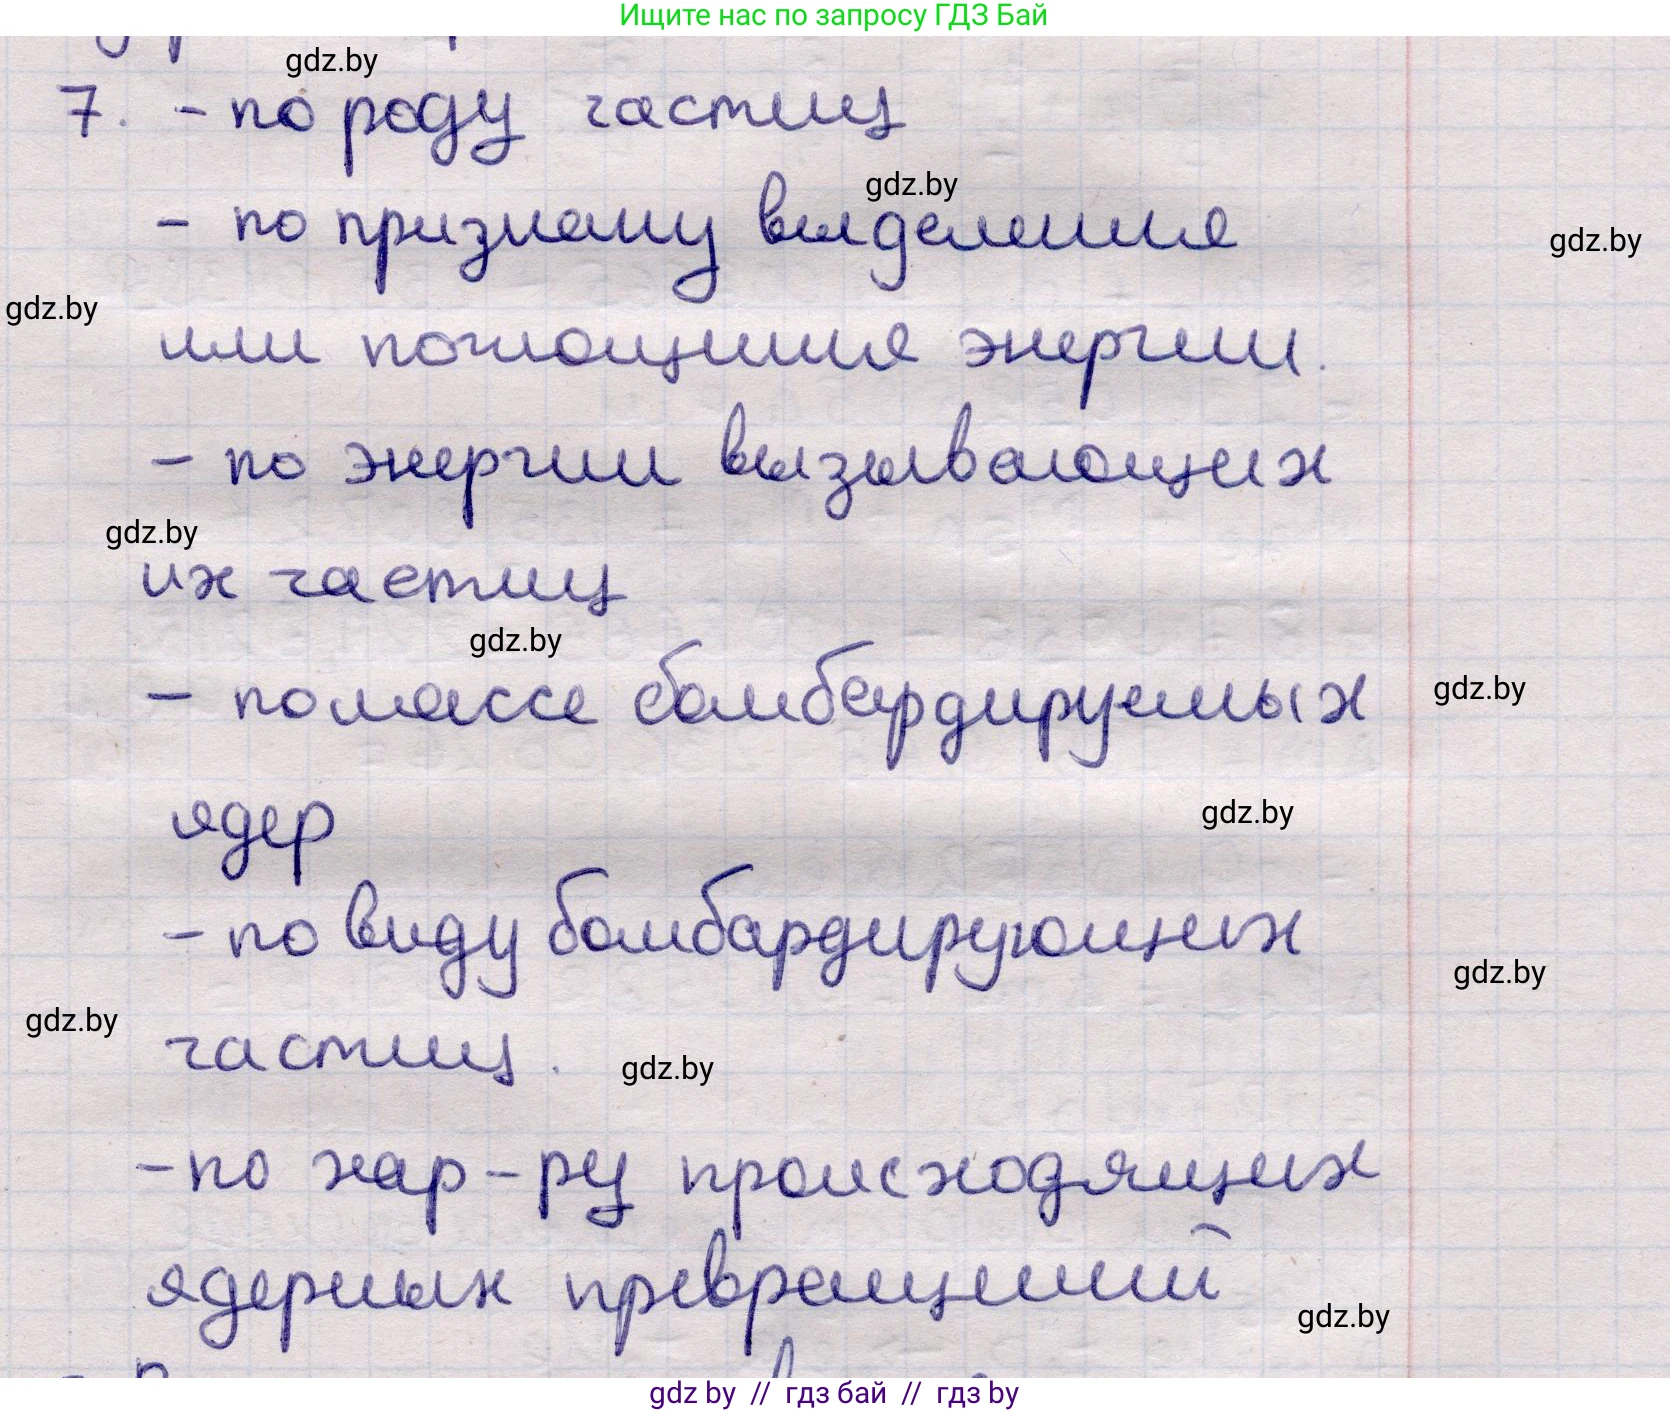 Ищите нас по запросу ГДЗ Бай
gdz.by
7. - по роду частиц
gdz.by
- по признаку выделения
gdz.by
gdz.by
или поглощения энергии.
- по энергии вызывающих
gdz.by
их частиц
gdz.by
- по массе бомбардируемых
gdz.by
ядер
gdz.by
- по виду бомбардирующих
gdz.by
gdz.by
частиц.
gdz.by
- по хар-ру происходящих
ядерных превращений
gdz.by
gdz by // гдз бай // гдз by